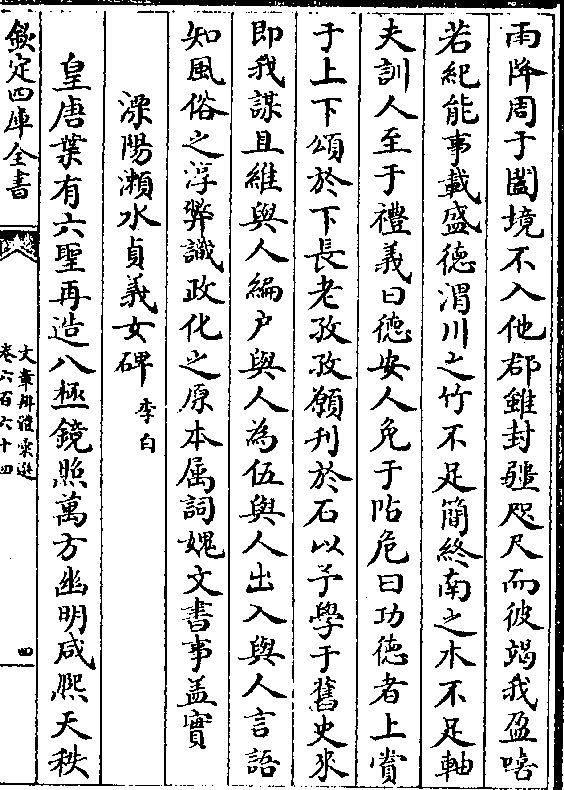 雨降周于闔境不入他郡雖封疆咫尺而彼竭我盈嘻
若紀能事載盛德渭川之竹不足簡終南之木不足軸
夫訓人至于禮義曰德安人免于阽危曰功德者上賞
于上下頌於下長老孜孜願刊於石以予學于舊史來
即我謀且維與人編户與人為伍與人出入與人言語
知風俗之浮弊識政化之原本屬詞媿文書事盖實
溧陽瀬水貞義女碑 李白
皇唐葉有六聖再造八極鏡照萬方幽明咸熙天秩
欽定四庫全書
文章辨體彙選
卷六百六十四
四